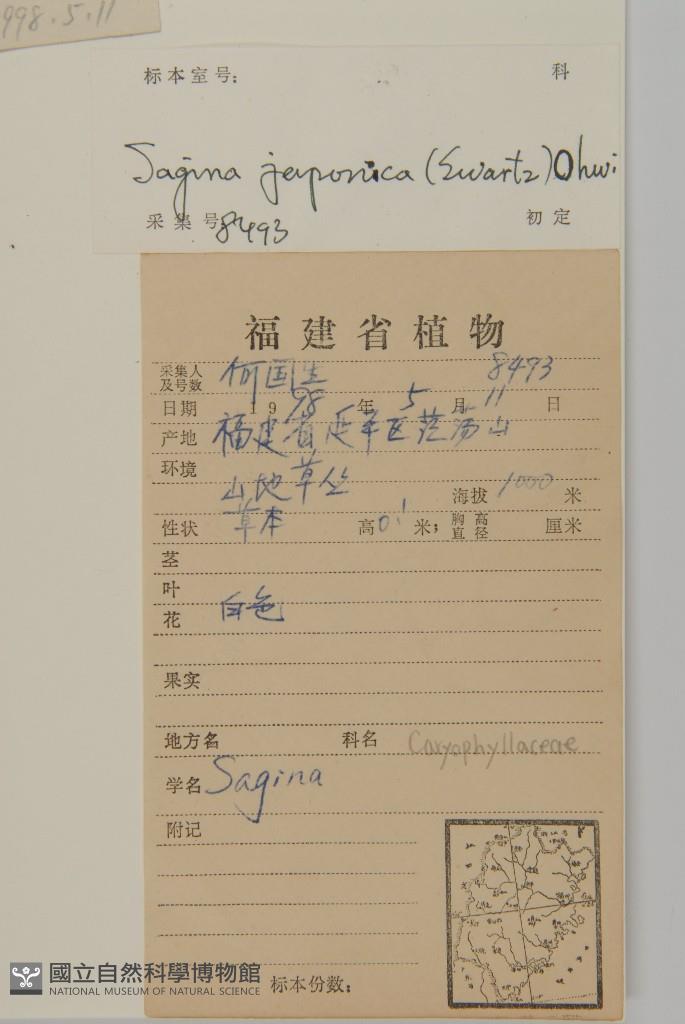 998.5.11
标本室号: 科
Sagina japonica (Swartz) Ohwi
采集号: 8493 初定
福建省植物
采集人及号数 何国生 8493
日期 1998年5月11日
产地 福建省延平区茫荡山
环境
山地草丛 海拔 1000 米
性状 草本 高0.1米; 胸高直径 厘米
茎
叶
花 白色
果实
地方名 科名 Caryophyllaceae
学名 Sagina
附记
标本份数:
國立自然科學博物館
NATIONAL MUSEUM OF NATURAL SCIENCE